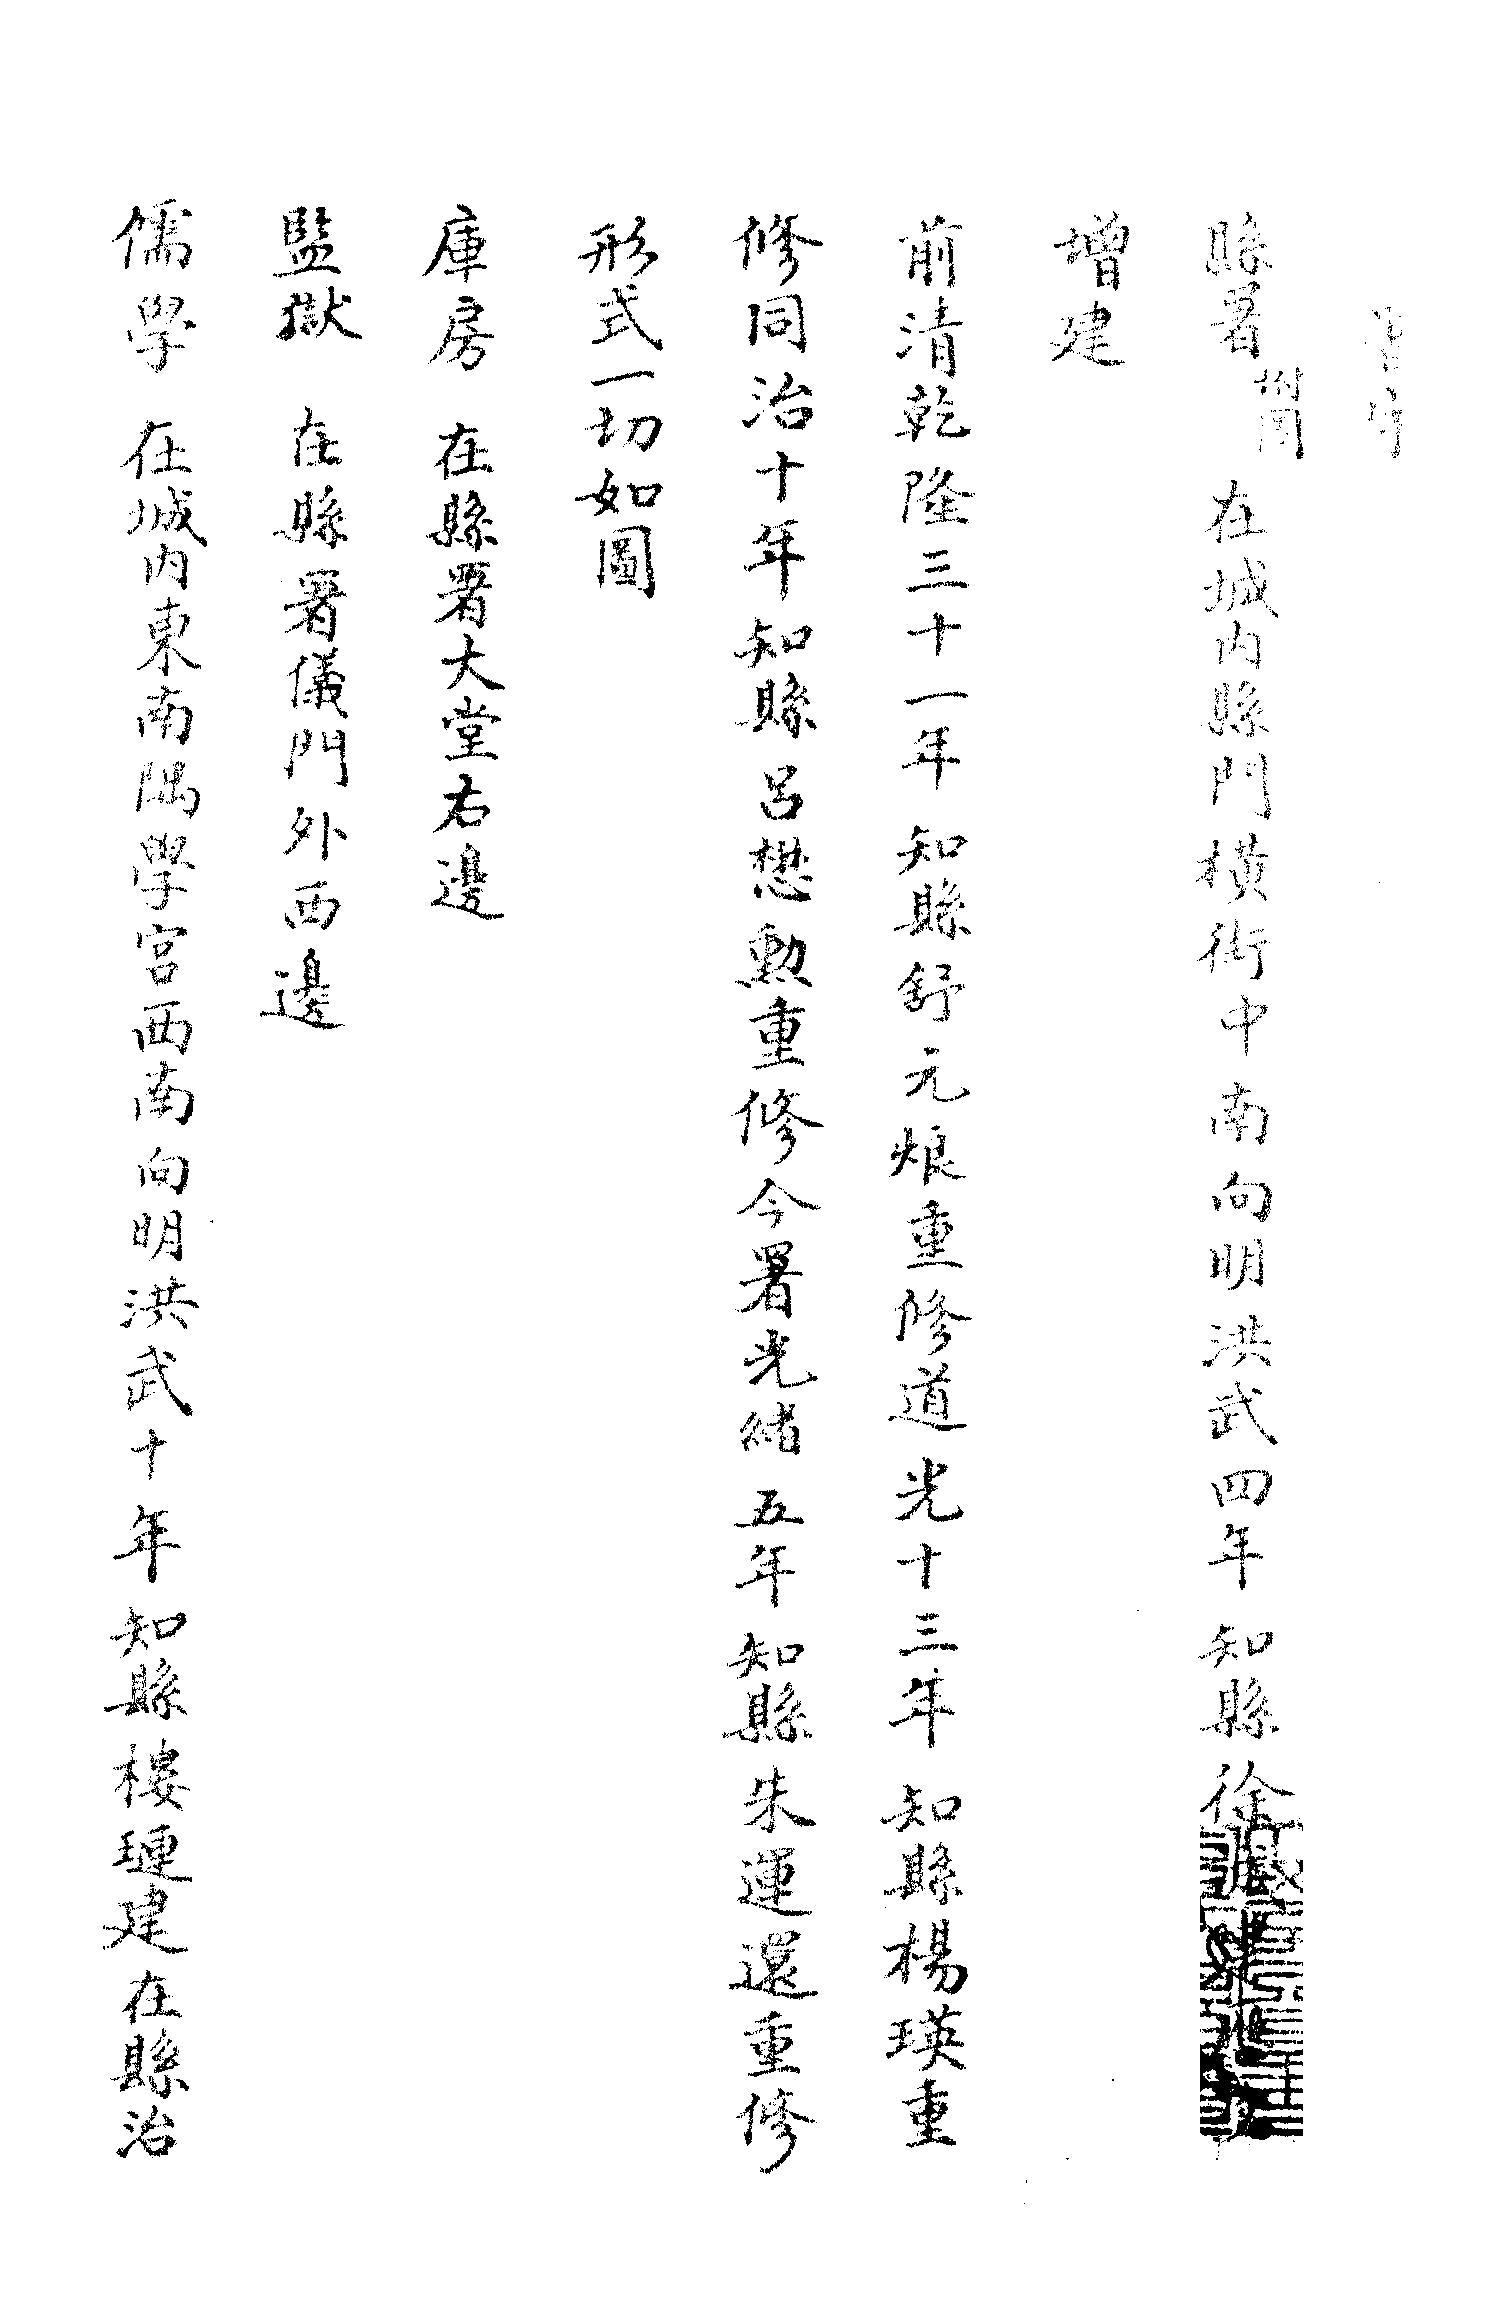 官守
縣署 附圖 在城内縣門橫街中南向明洪武四年知縣徐
增建
前清乾隆三十一年知縣舒元烺重修道光十三年知縣楊瑛重
修同治十年知縣呂懋勳重修今署光緒五年知縣朱運還重修
形式一切如圖
庫房 在縣署大堂右邊
監獄 在縣署儀門外西邊
儒學 在城内東南隅學宮西南向明洪武十年知縣樓璉建在縣治